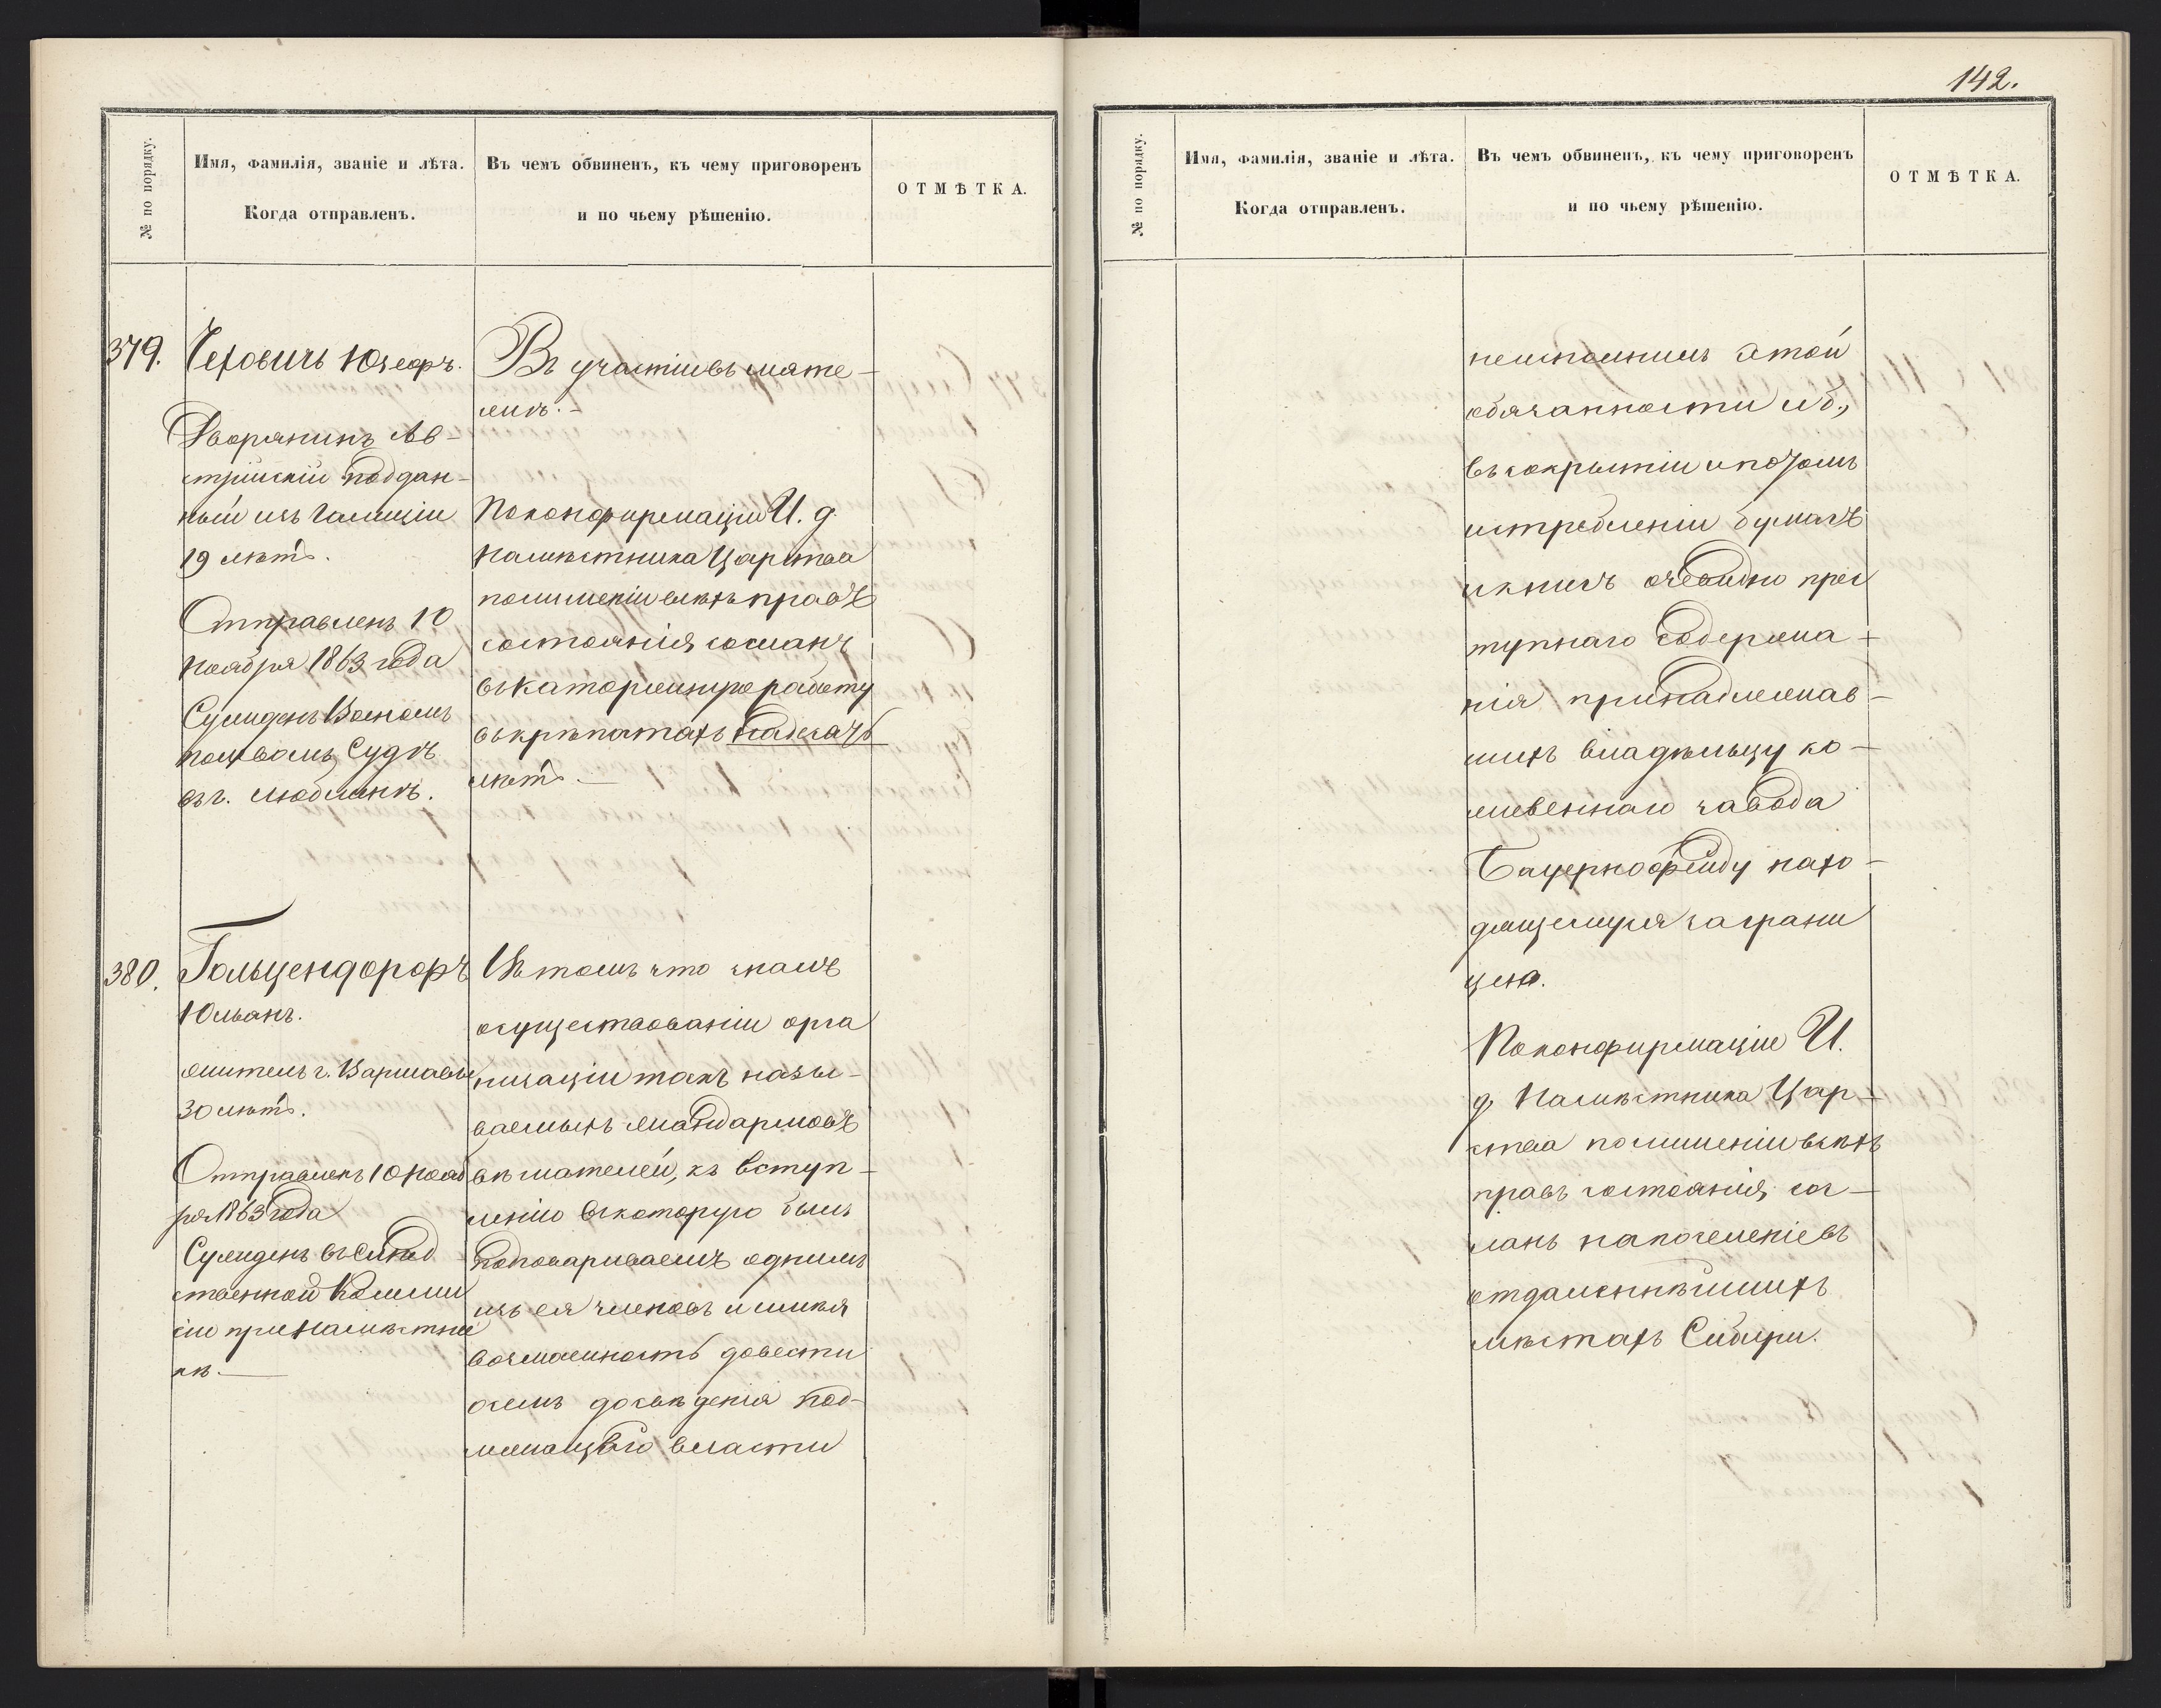 № по порядку.
Имя, фамилія, званіе и лѣта.
Когда отправленъ.
Въ чемъ обвиненъ, къ чему приговоренъ
и по чьему рѣшенію.
ОТМѢТКА.
379.
Чеховичъ Юзефъ.
Дворянинъ Ав-
стрійскій поддан-
ный изъ Галиціи
19 лѣтъ.
Отправленъ 10
Ноября 1863 года
Сужденъ Военнымъ
Полевымъ Судомъ
въ г. Люблинѣ.
Въ участіи въ мяте-
жѣ.-
По конфирмаціи И. д.
Намѣстника Царства
по лишеніи всѣхъ правъ
состоянія сосланъ
въ каторжную работу
въ крѣпостяхъ на десять
лѣтъ.
380.
Гольцендорфъ
Юліанъ.
житель г. Варшавы
30 лѣтъ.
Отправленъ 10 Нояб
ря 1863 года
Сужденъ въ Слѣд
ственной Коммис
сіи при Намѣстни
кѣ.
Въ томъ что зналъ
осуществованіи орга
низаціи такъ назы-
ваемыхъ жандармовъ
вѣшателей, къ вступ-
ленію въ которую былъ
подговариваемъ однимъ
изъ ея членовъ и имѣя
возможность довести
осемъ до свѣденія под-
лежащаго власти
142.
№ по порядку.
Имя, фамилія, званіе и лѣта.
Когда отправленъ.
Въ чемъ обвиненъ, къ чему приговоренъ
и по чьему рѣшенію.
ОТМѢТКА.
неисполнилъ этой
обязанности и б.,
въ сокрытіи и потомъ
истребленіи бумагъ
и книгъ очевидно прес
тупнаго содержа-
нія принадлежав-
шихъ владѣльцу ко-
жевеннаго завода
Бауернофейду нахо-
дящемуся заграни
цею.
По конфирмаціи И.
д. Намѣстника Цар-
ства по лишеніи всѣхъ
правъ состоянія, сос-
ланъ на поселеніе въ
отдаленнѣйшихъ
мѣстахъ Сибири.